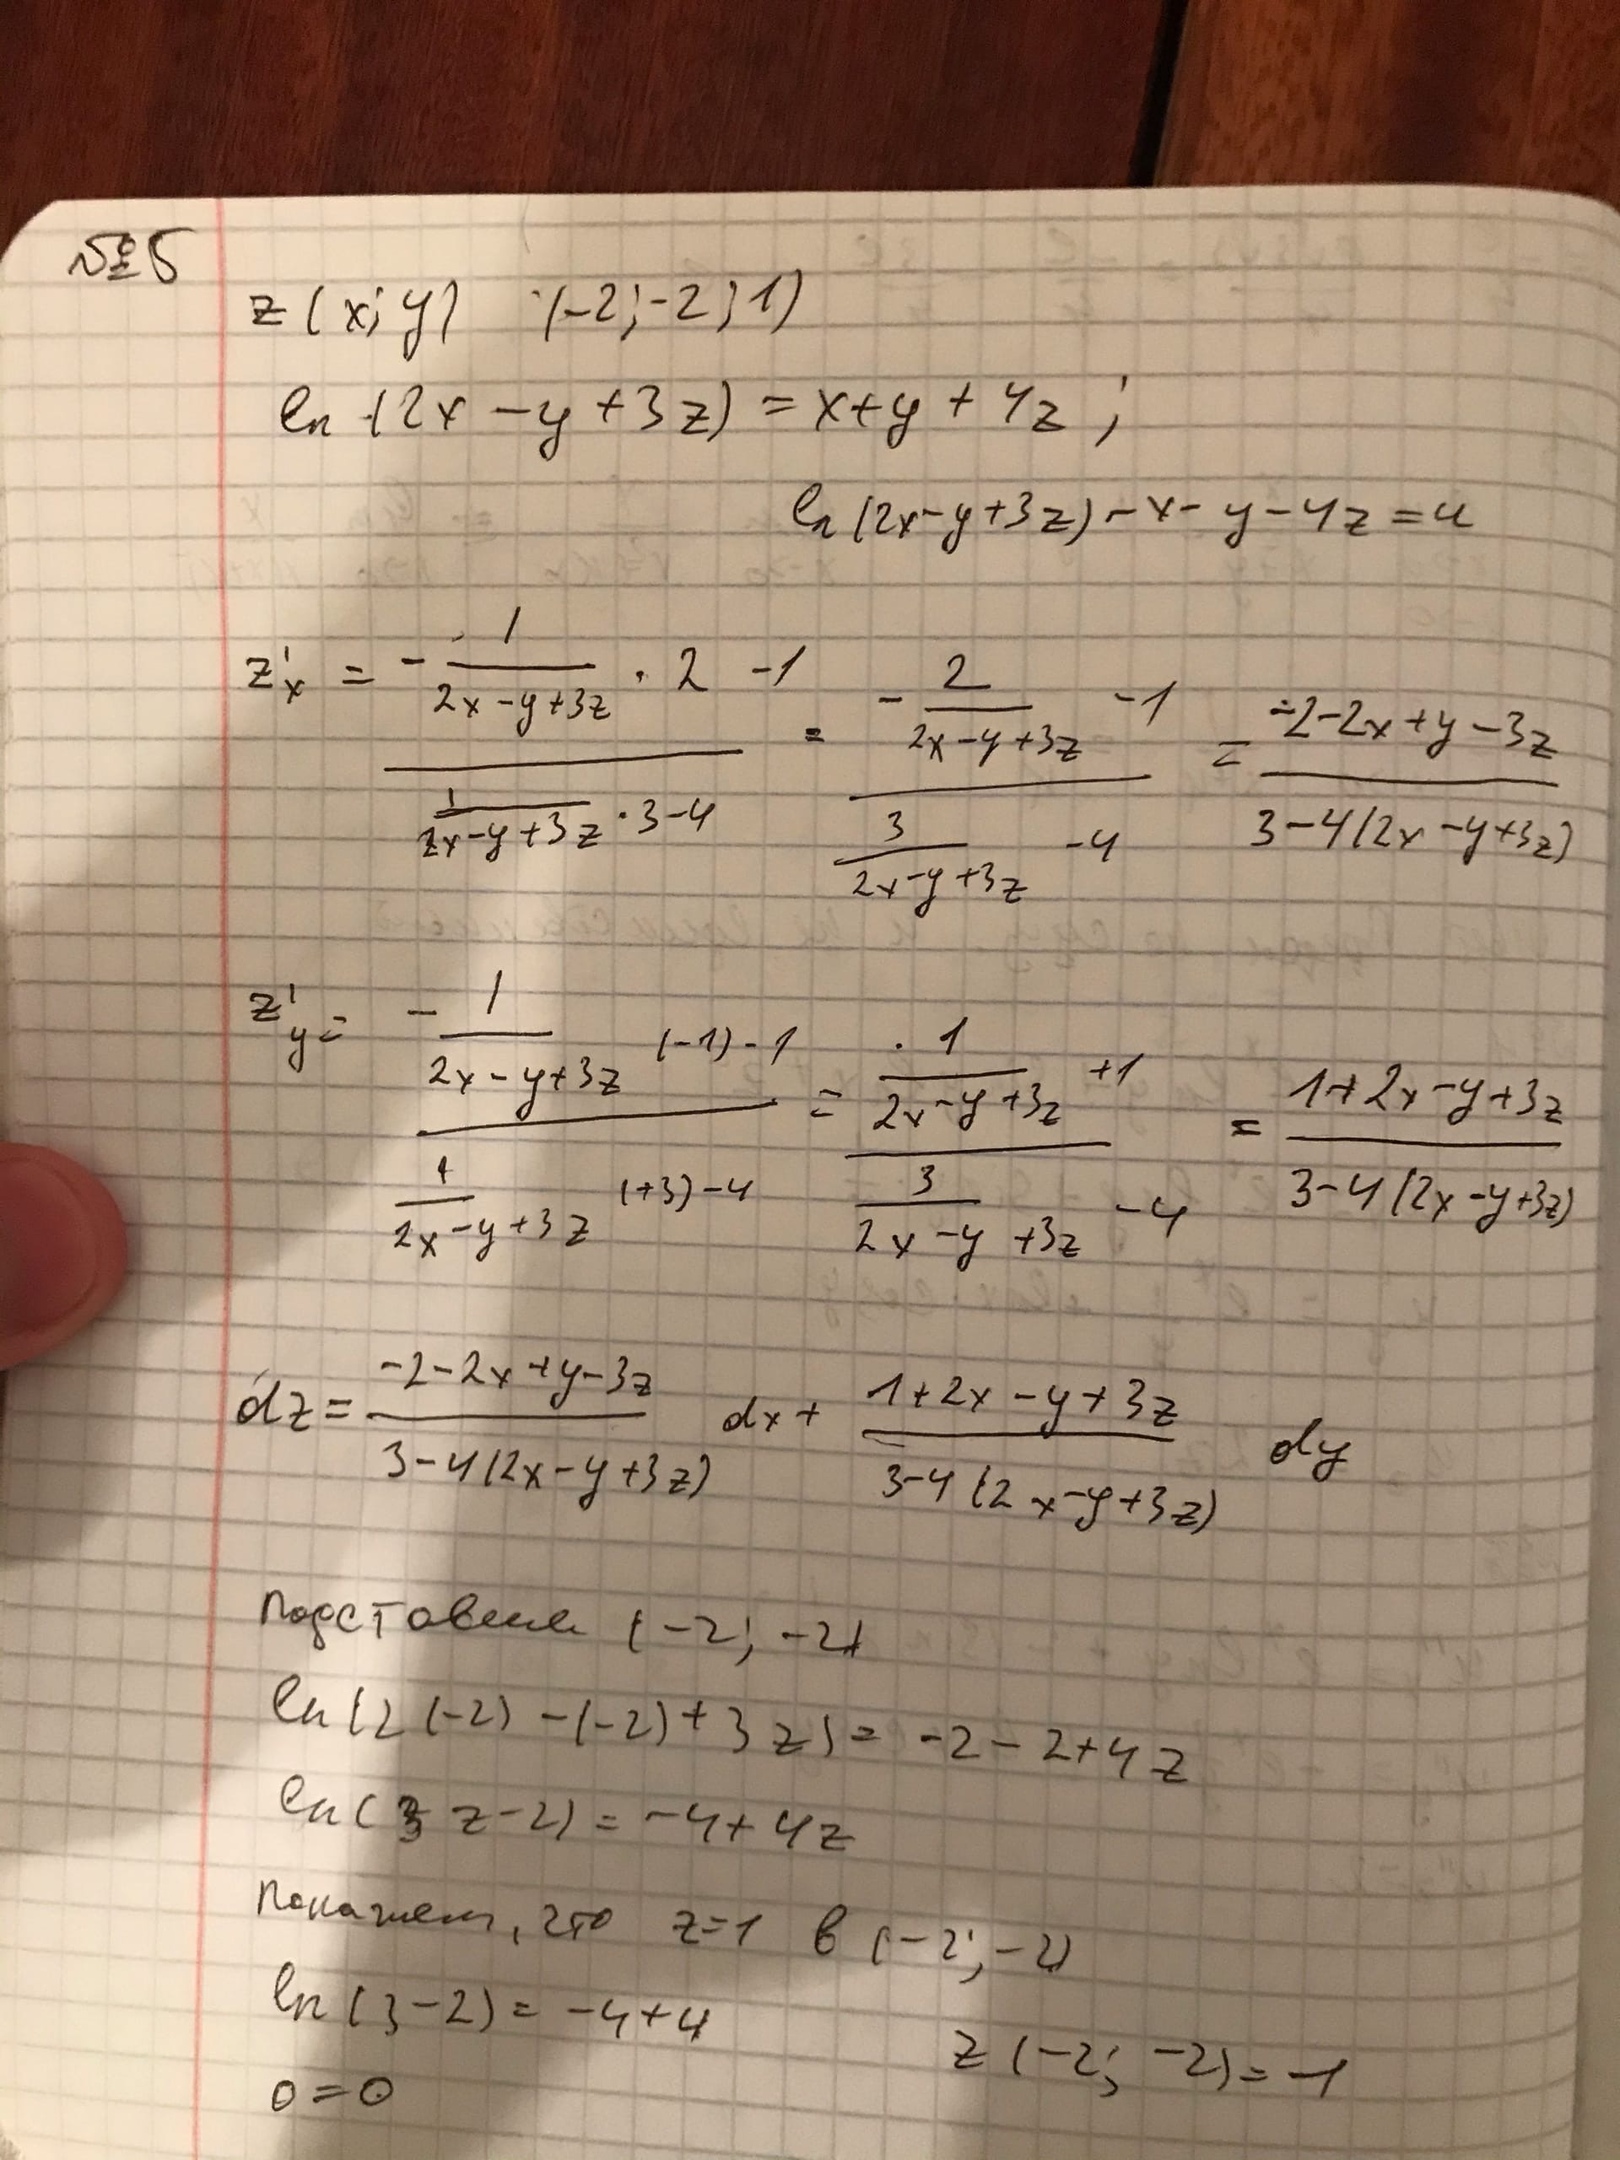 №5
z(x;y) (-2;-2;1)
ln(2x-y+3z)=x+y+4z;
ln(2x-y+3z)-x-y-4z=u
z'x = (-1/(2x-y+3z) · 2 -1)/(1/(2x-y+3z) · 3-4) = (-2/(2x-y+3z) -1)/(3/(2x-y+3z) -4) = (-2-2x+y-3z)/(3-4(2x-y+3z))
z'y = (-1/(2x-y+3z) (-1)-1)/(1/(2x-y+3z) (+3)-4) = (1/(2x-y+3z) +1)/(3/(2x-y+3z) -4) = (1+2x-y+3z)/(3-4(2x-y+3z))
dz = (-2-2x+y-3z)/(3-4(2x-y+3z)) dx + (1+2x-y+3z)/(3-4(2x-y+3z)) dy
Подставим (-2; -2)
ln(2(-2)-(-2)+3z)= -2-2+4z
ln(3z-2)= -4+4z
Покажем, что z=1 в (-2;-2)
ln(3-2)= -4+4
0=0
z(-2; -2)= -1